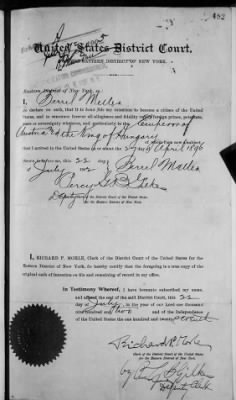 482
United States District Court,
EASTERN DISTRICT OF NEW YORK.
Eastern District of New York, ss
I, Berril Mellea
do declare on oath, that it is bona fide my intention to become a citizen of the United
States, and to renounce forever all allegiance and fidelity to any foreign prince, potentate,
state or sovereignty whatever, and particularly to the Emperor of
Austria & the King of Hungary
that I arrived in the United States on or about the 22nd April
this 22 day
July 1902
Percy G. B. Gilkes
Deputy Clerk of the District Court of the United States
for the Eastern District of New York.
I, RICHARD P. MORLE, Clerk of the District Court of the United States for the
Eastern District of New York, do hereby certify that the foregoing is a true copy of the
original declaration of intention on file and remaining of record in my office.
In Testimony Whereof, I have hereunto subscribed my name
and affixed the seal of the said District Court, this 22
day of July in the year of our Lord one thousand
nine hundred and two and of the Independence
of the United States the one hundred and twenty
Richard P. Morle
Clerk of the District Court of the United States
for the Eastern District of New York.
by P. G. B. Gilkes
Deputy Clerk